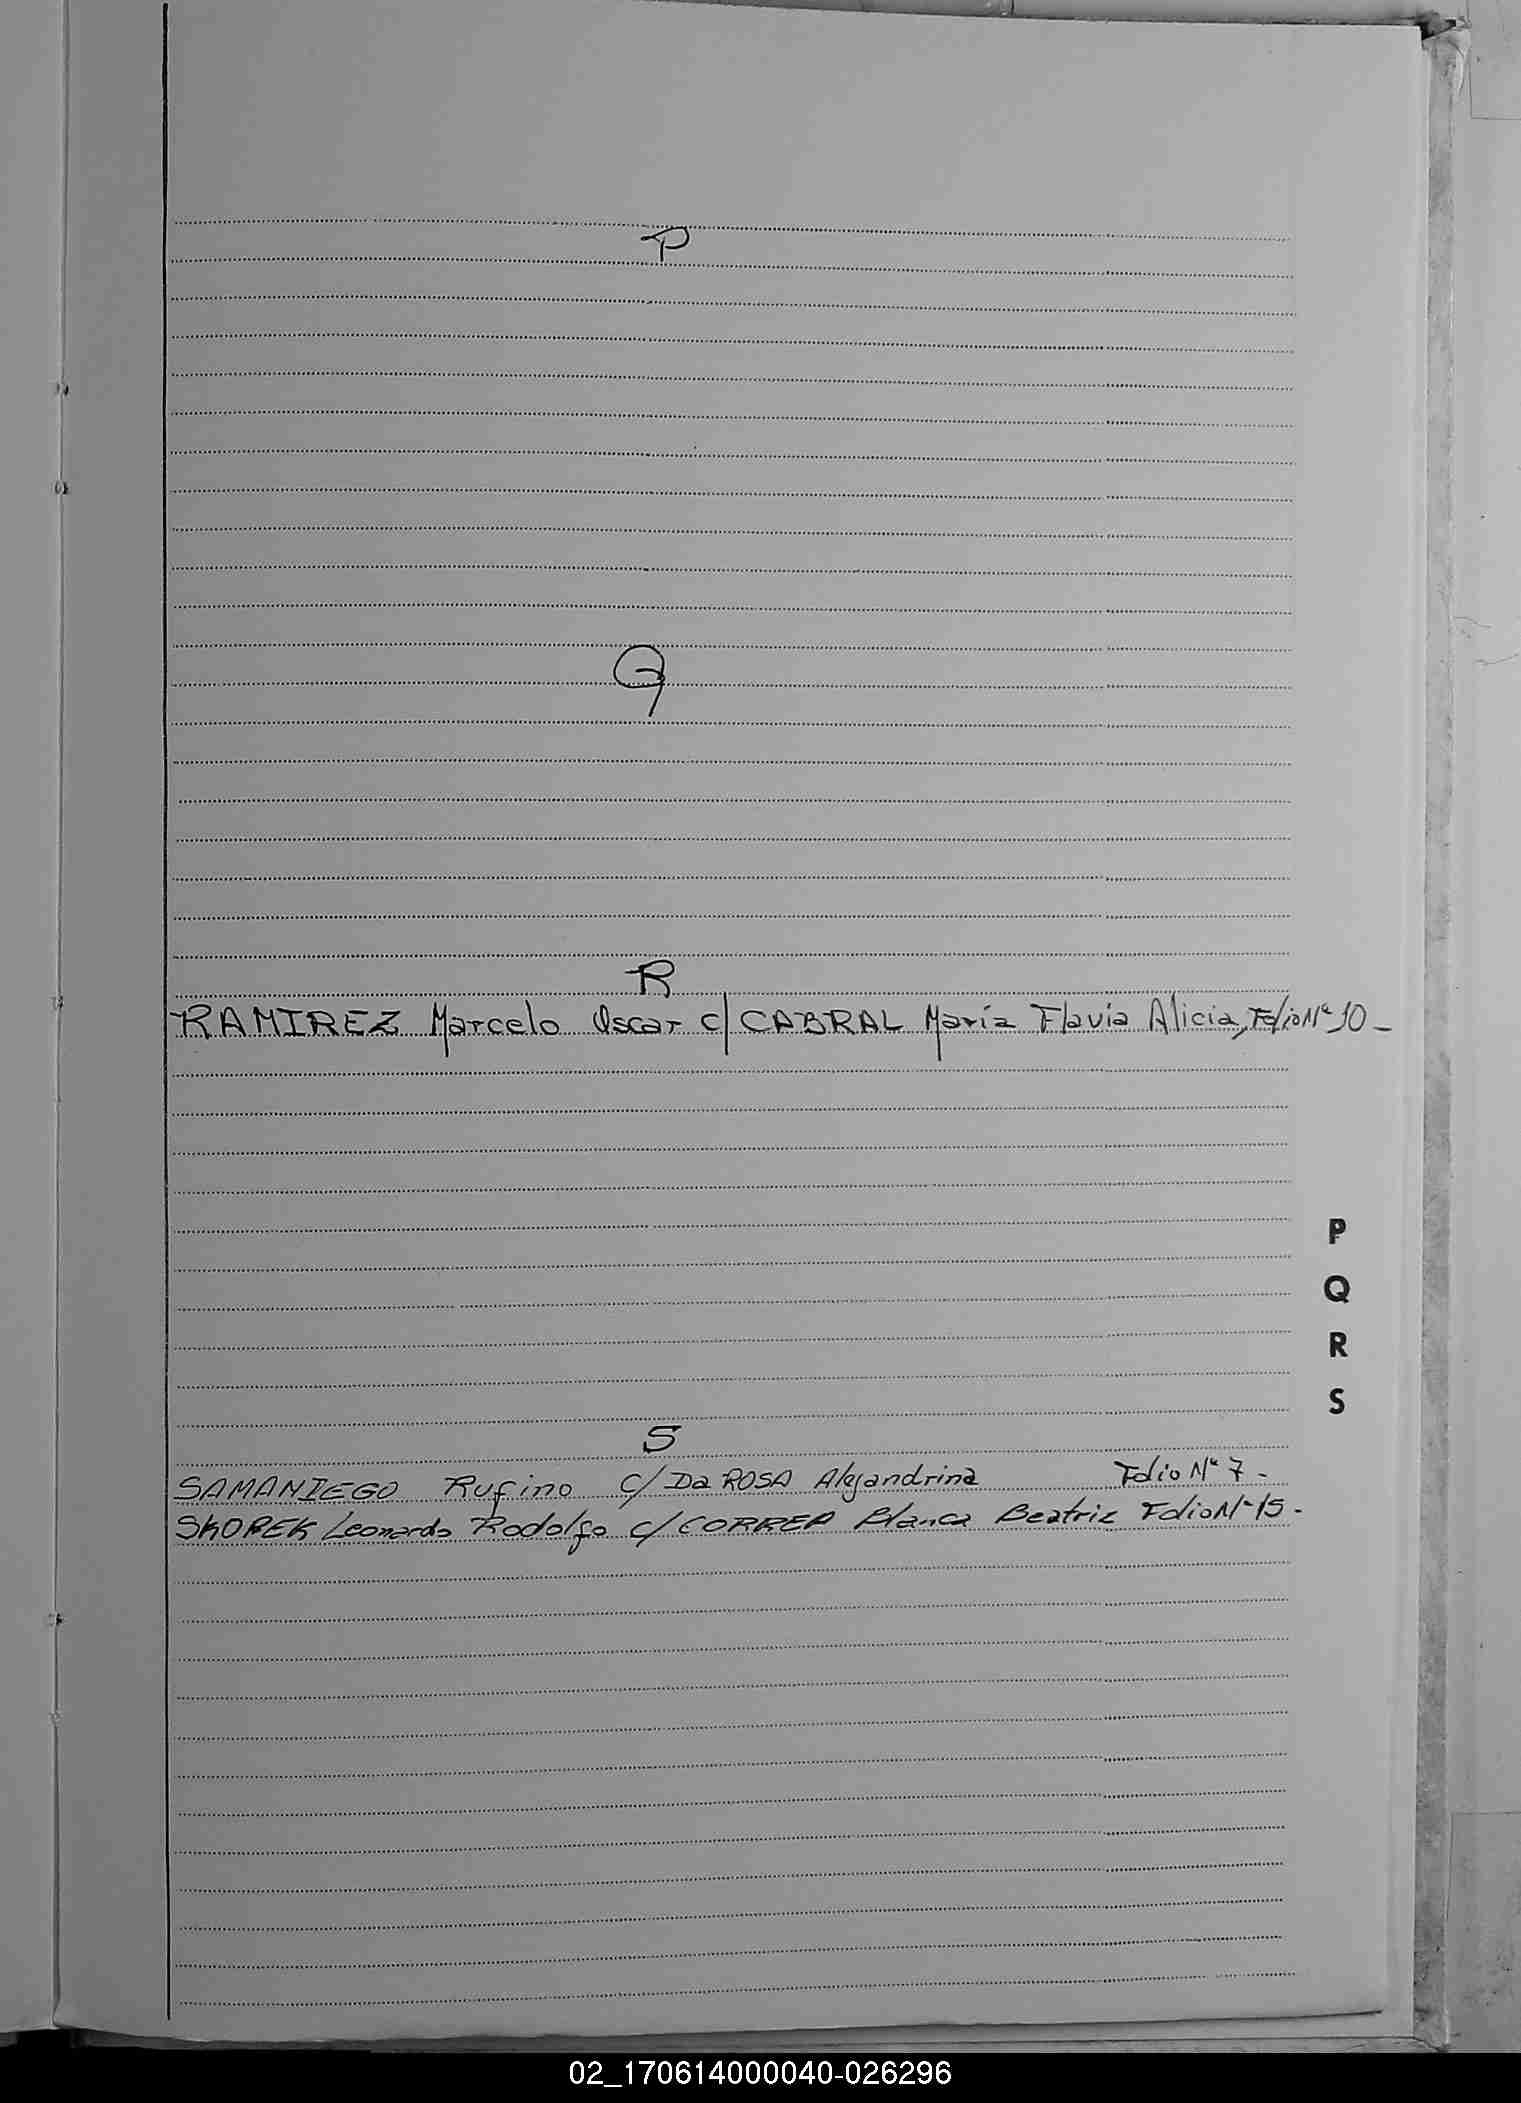 P
Q
R
RAMIREZ Marcelo Oscar c/ CABRAL María Flavia Alicia, Folio Nº 10 -
P
Q
R
S
S
SAMANIEGO Rufino c/ Da ROSA Alejandrina Folio Nº 7 -
SKOREK Leonardo Rodolfo c/ CORREA Blanca Beatriz Folio Nº 15 -
02_170614000040-026296